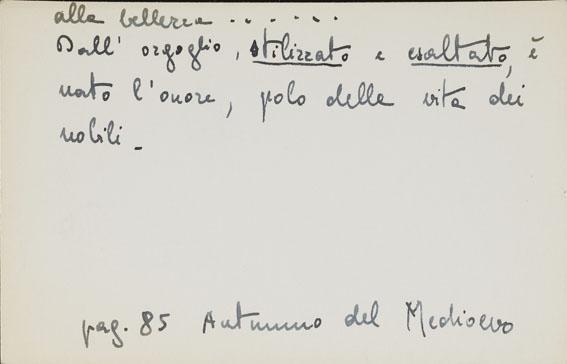 alla bellezza . . . . . .
Dall' orgoglio, stilizzato e esaltato, è
nato l'onore, polo della vita dei
nobili.
pag. 85 Autunno del Medioevo